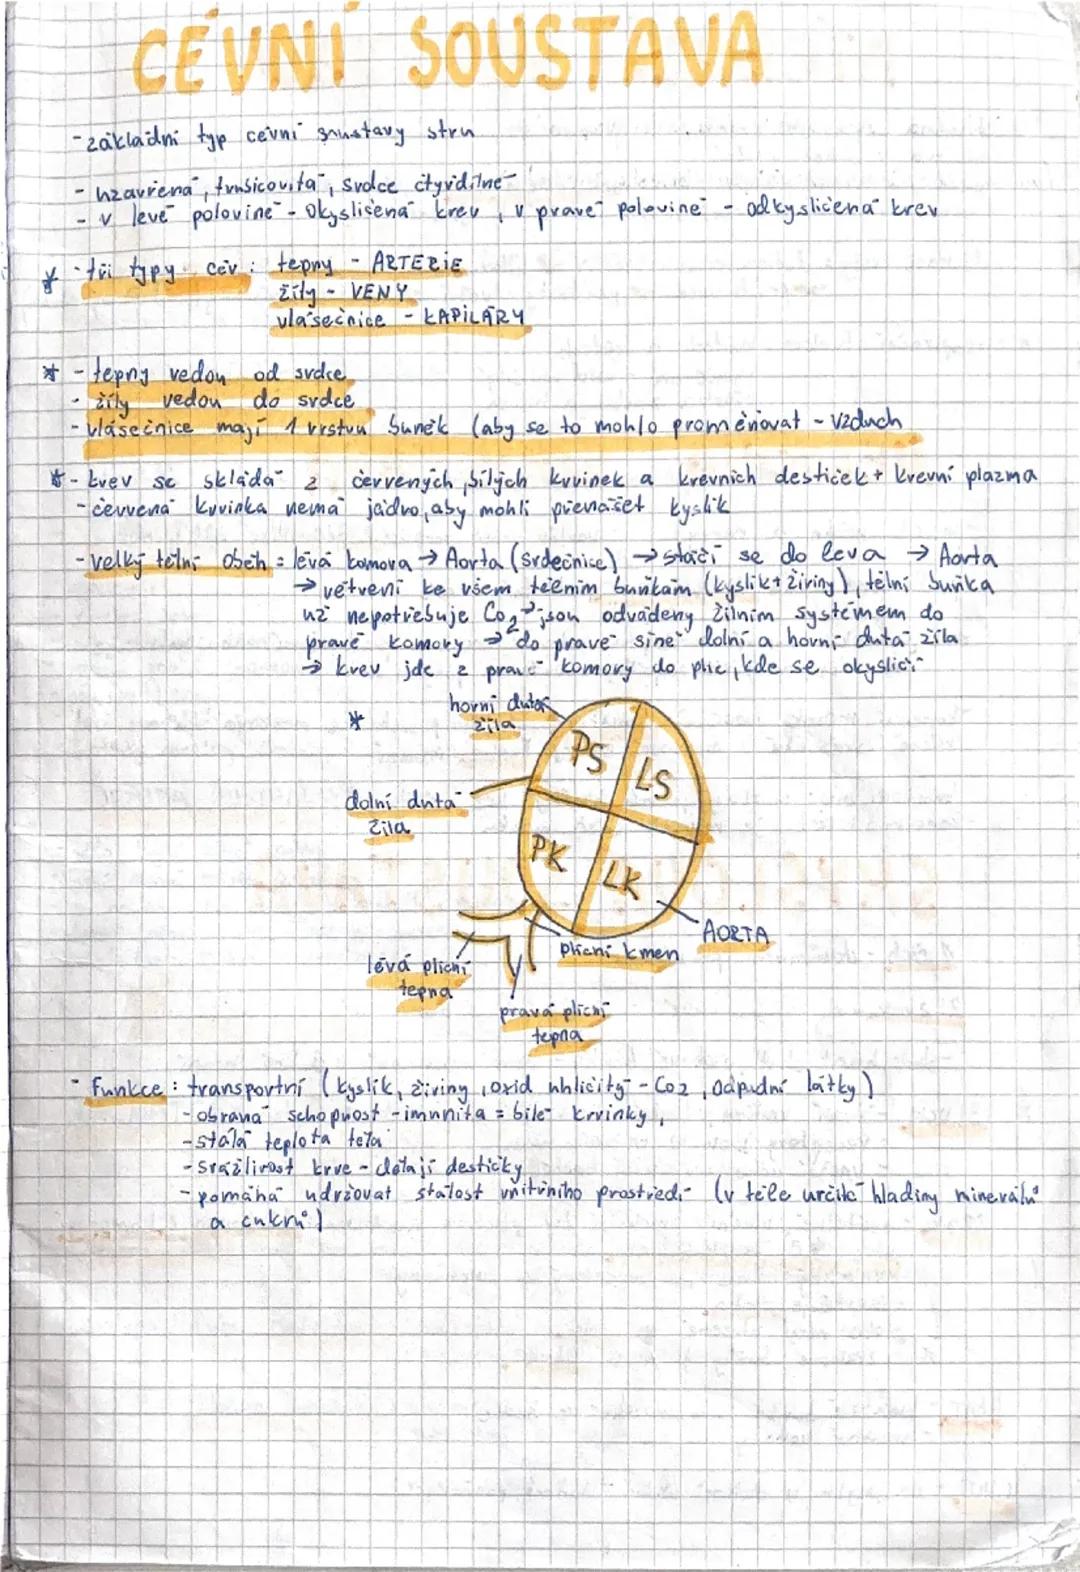 CÉVNÍ SOUSTAVA
- základní typ cévní soustavy
- uzavřená, trubicovitá, srdce čtyřdílné
- v levé polovině - Okysličená krev, v pravé polovině - odkysličená krev
* - tři typy cév: tepny - ARTERIE
žíly - VENY
vlásečnice - KAPILÁRY
* - tepny vedou od srdce
- žíly vedou do srdce
- vlásečnice mají 1 vrstvu buněk (aby se to mohlo proměňovat - vzduch
* - krev se skládá z červených, bílých krvinek a krevních destiček + krevní plazma
- červená krvinka nemá jádro, aby mohli přenášet kyslík
- velký tělní oběh = levá komora → Aorta (srdečnice) → stáčí se do leva → Aorta
→ větvení ke všem tělním buňkám (kyslík + živiny), tělní buňka
už nepotřebuje Co2 → jsou odváděny žilním systémem do
pravé komory → do pravé síně dolní a horní dutá žíla
→ krev jde z pravé komory do plic, kde se okysličí
* horní dutá
žíla
PS LS
dolní dutá
žíla
PK LK
AORTA
plicní kmen
levá plicní
tepna
pravá plicní
tepna
- funkce: transportní (kyslík, živiny, oxid uhličitý - Co2, odpadní látky)
- obraná schopnost - imunita = bílé krvinky,
- stálá teplota těla
- srážlivost krve - dělají destičky
- pomáhá udržovat stálost vnitřního prostředí (v těle určité hladiny minerálů
a cukrů)